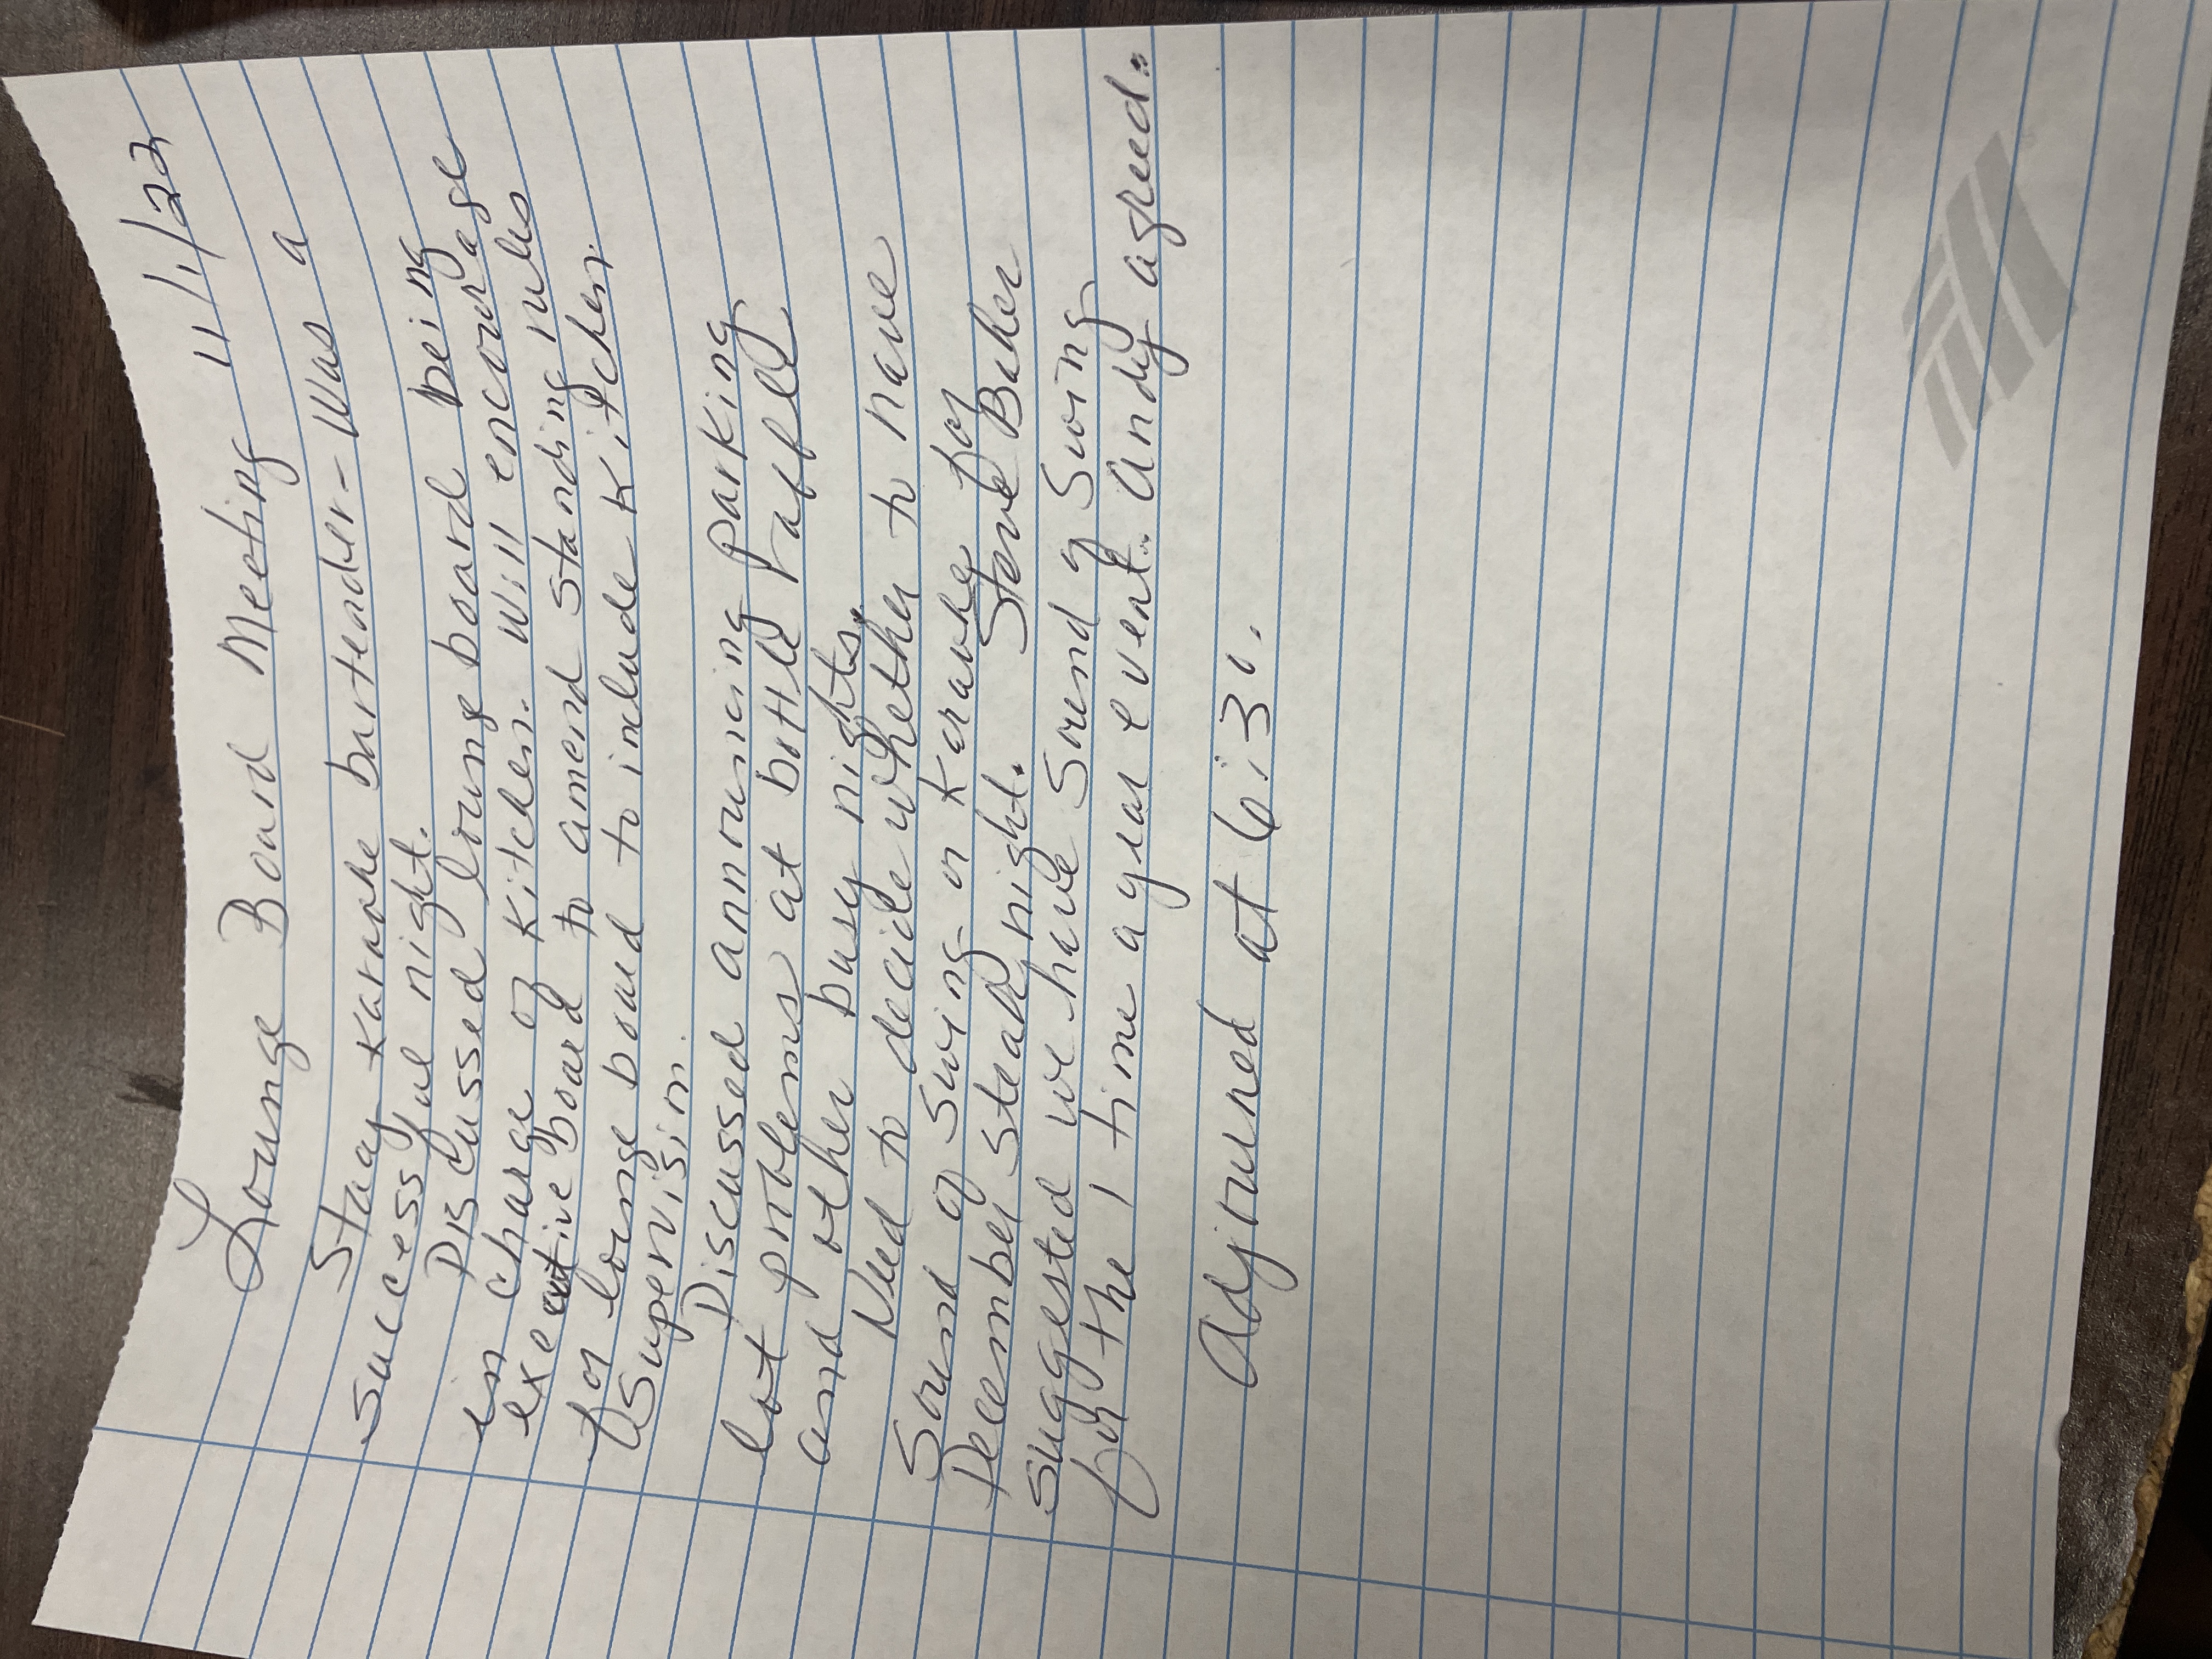 Lounge Board Meeting 11/1/22
Stacy Karaoke bartender - Was a
successful night.
Discussed lounge board being
in charge of kitchen. Will encourage
executive board to amend standing rules
for lounge board to include kitchen
supervision.
Discussed announcing parking
lot problems at bottle raffle
and other busy nights.
Need to decide whether to have
Sound of Swing or Keraoke for
December steak night. Steve Baker
suggested we have Sound of Swing
for the 1 time a year event. Andy agreed.
Adjourned at 6:30.